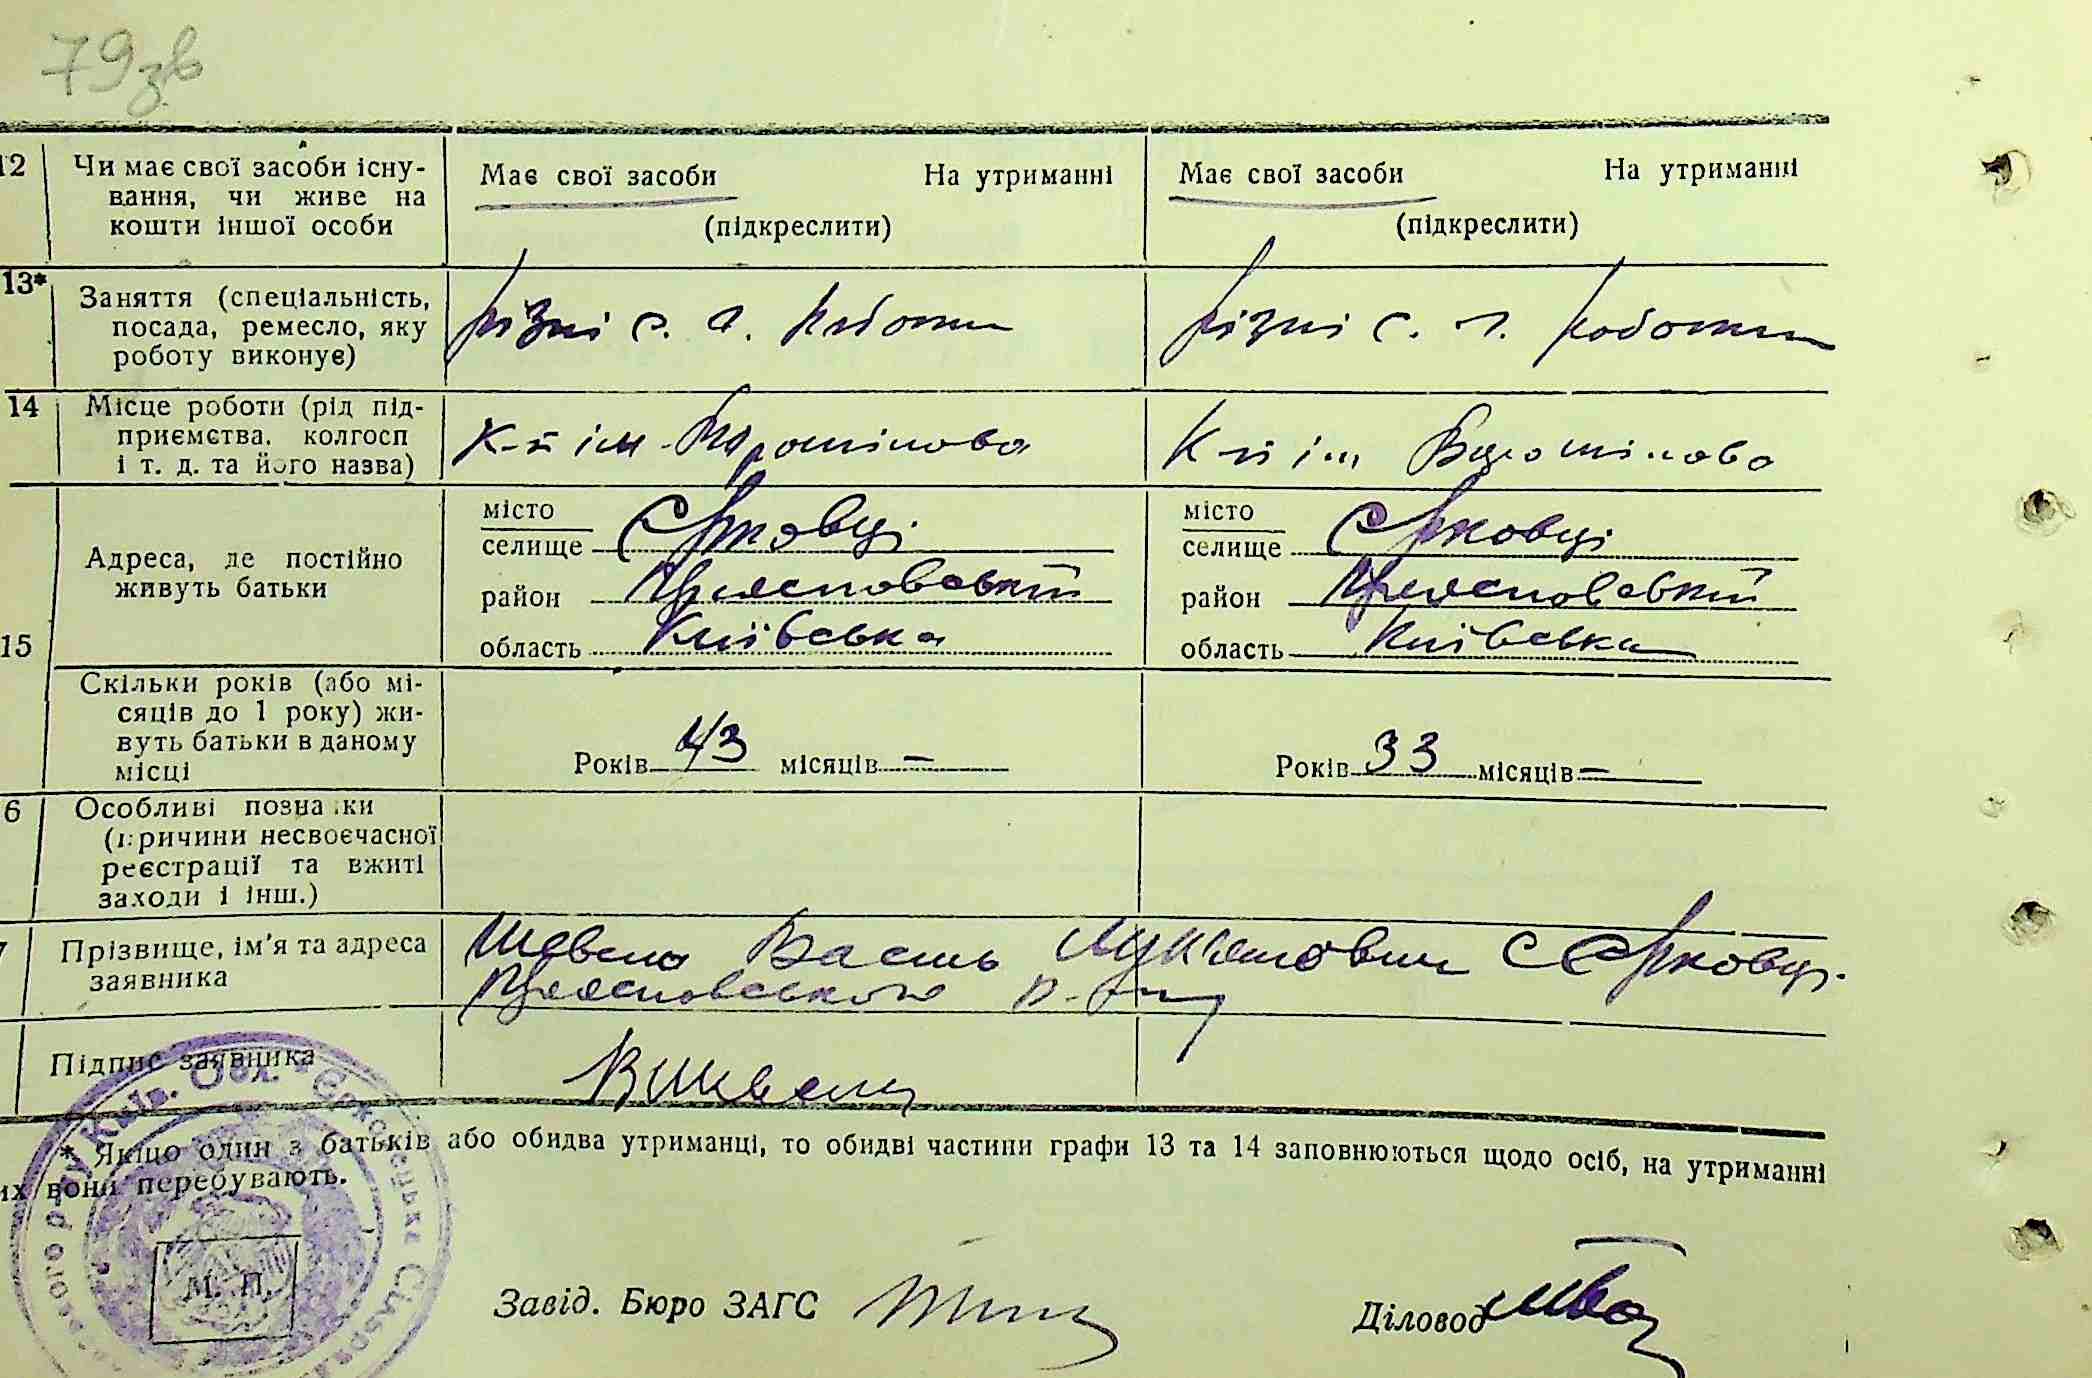 79зв
12 Чи має свої засоби існу-
вання, чи живе на
кошти іншої особи
Має свої засоби На утриманні
(підкреслити)
Має свої засоби На утриманні
(підкреслити)
13* Заняття (спеціальність,
посада, ремесло, яку
роботу виконує)
різні с. г. роботи
різні с. г. роботи
14 Місце роботи (рід під-
приємства, колгосп
і т. д. та його назва)
к-п ім Ворошилова
К-п ім Ворошилова
15 Адреса, де постійно
живуть батьки
місто
селище Єрковці
район
область Київська
місто
селище Єрковці
район
область Київська
Скільки років (або мі-
сяців до 1 року) жи-
вуть батьки в даному
місці
Років 43 місяців –
Років 33 місяців –
6 Особливі познаки
(причини несвоєчасної
реєстрації та вжиті
заходи і інш.)
7 Прізвище, ім'я та адреса
заявника
Василь с Єрковці
Підпис заявника
* Якщо один з батьків або обидва утриманці, то обидві частини графи 13 та 14 заповнюються щодо осіб, на утриманні
их вони перебувають.
М. П.
Завід. Бюро ЗАГС
Діловод